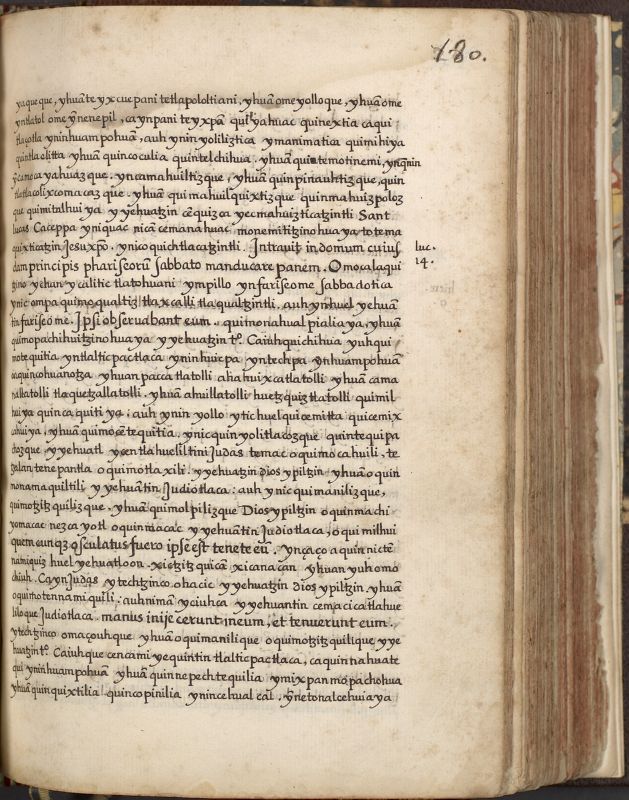 180.
yaqueque, yhuã te yxcuepani tetlapololtiani, yhuã ome yolloque, yhuã ome
yntlatol ome yñ nenepil, ca ynpani teyxpã yahuac quinextia ca qui
tlaçotla yninhuampohuã, auh ynin yoliliztica ymanimatica quimihiya
quintlaelitta yhuã quincoculia quintelchihua. yhuã quintemotinemi, ynquin
yeamoca yahuazque, yncamahuiltizque, yhuã quinpinauhtizque, quin
tlatlacolixcomacazque. yhuã quimahuilquixtizque quinmahuizpoloz
que quimitalhuiya yyehuatzin cẽquizca yecmahuizticatzintli Sant
lucas Caceppa yniquac nicã cemanahuac monemitiginohuaya totema
quixticatzin Jesuxpõ. ynicoquichtlacatzintli. Intravit in domum cuius
luc.
14.
dam principis phariseorũ sabbato manducare panem. Omocalaqui
tzino ychan ycalitic tlatohuani ympillo ynfariseome sabbadotica
ynic ompa quimoqualtiz tlaxcalli tlaqualtzintli. auh ynhuel yehuã
tin fariseome. Ipsi observabant eum. quimoriahualpialiaya, yhuã
quimopachihuitzinohuaya yyehuatzin tº. Caiuhquichihua yuhqui
motequitia yntlalticpactlaca, yninhuicpa yntechpa ynhuampohuã
oaquincohuanotza yhuan pacca tlatolli ahahuixcatlatolli yhuã cama
nallatolli tlaquetzallatolli. yhuã ahuillatolli huetzquiztlatolli quimil
huiya quincaquitiya: auh ynin yollo ytic huel quicemitta quicemix
cahuiya, yhuã quimocẽtequitia. ynic quinyolitlacozque quintequipa
chozque yyehuatl ycentlahueliltini Judas temac oquimocahuili. te
tzalan tenepantla oquimotlaxili. yyehuatzin Dios ypiltzin yhuã oquin
monamaquiltili yyehuãtin Judiotlaca: auh ynic quimanilizque,
quimotzitzquilizque, yhuã quimolpilizque Dios ypiltzin oquinmachi
yomacac nezcayotl oquinmacac yyehuãtin Judiotlaca; oquimilhui
quemcunqз osculatus fuero ipse est tenete eũ. ynçaço aquin nicte
namiquiz huel yehuatl oon. xictzitzquicã xicanacan yhuan yuh omo
chiuh. Ca ynJudas ytechtzinco ohacic yyehuatzin Dios ypiltzin yhuã
oquimotennamiquili: auhnimã yciuhca yyehuantin cemacicatlahue
liloque Judiotlaca. manus inijecerunt in eum, et tenuerunt eum.
ytechtzinco omaçouhque yhuã oquimanilique oquimotzitzquilique, yye
huatzin tº. Caiuhque cencamiyequintin tlalticpactlaca, caquinnahuate
qui yninhuampohuã yhuã quinnepechtequilia ymixpan mopachohua
yhuã quinquixtilia quincopinilia ynincehualcal, yñetonalcehuiaya